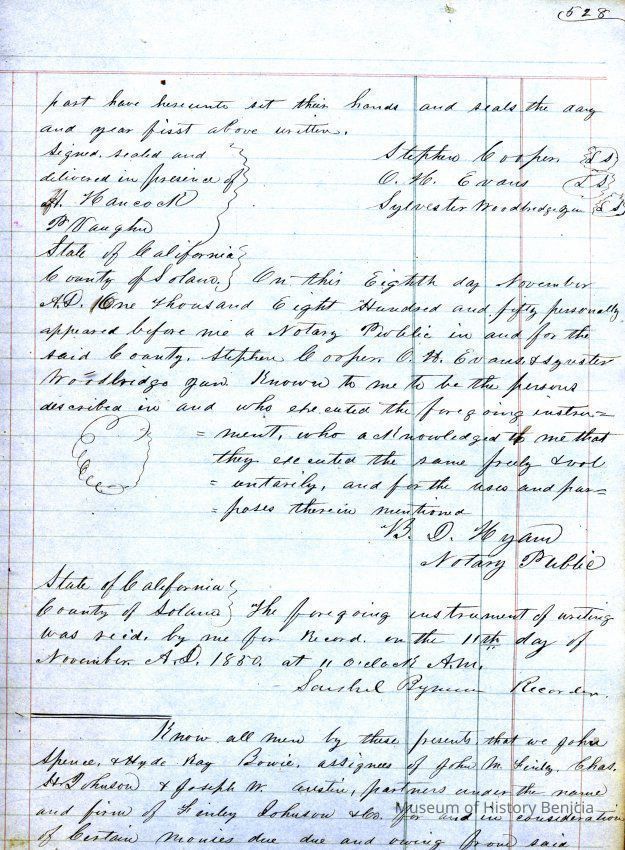 528
part have hereunto set their hands and seals the day
and year first above written.
Signed, sealed and
delivered in presence of
H. Hancock
P. Vaughn
Stephen Cooper. L S
C. H. Evans L S
Sylvester Woodbridge Jun L S
State of California
County of Solano. On this Eighth day November
A.D. One Thousand Eight Hundred and fifty personally
appeared before me a Notary Public in and for the
said County. Stephen Cooper. C. H. Evans & Sylvster
Woodbridge Jun. Known to me to be the persons
described in and who executed the foregoing instru=
= ment, who acknowledged to me that
they executed the same freely & vol
= untarily, and for the uses and pur=
= poses therein mentioned
B. D. Hyam
Notary Public
State of California
County of Solano The foregoing instrument of writing
was recd. by me for Record. on the 11th day of
November A.D. 1850. at 11 O'clock A.M.
Bynum Recorder.
Know all men by these presents, that we John
Spence, & Hyde Ray Bowie, assignees of John M. Finly, Chas.
H. Johnson & Joseph W. Austin, partners under the name
and firm of Finley Johnson & Co. for and in consideration
of Certain monies due due and owing from said
Museum of History Benicia